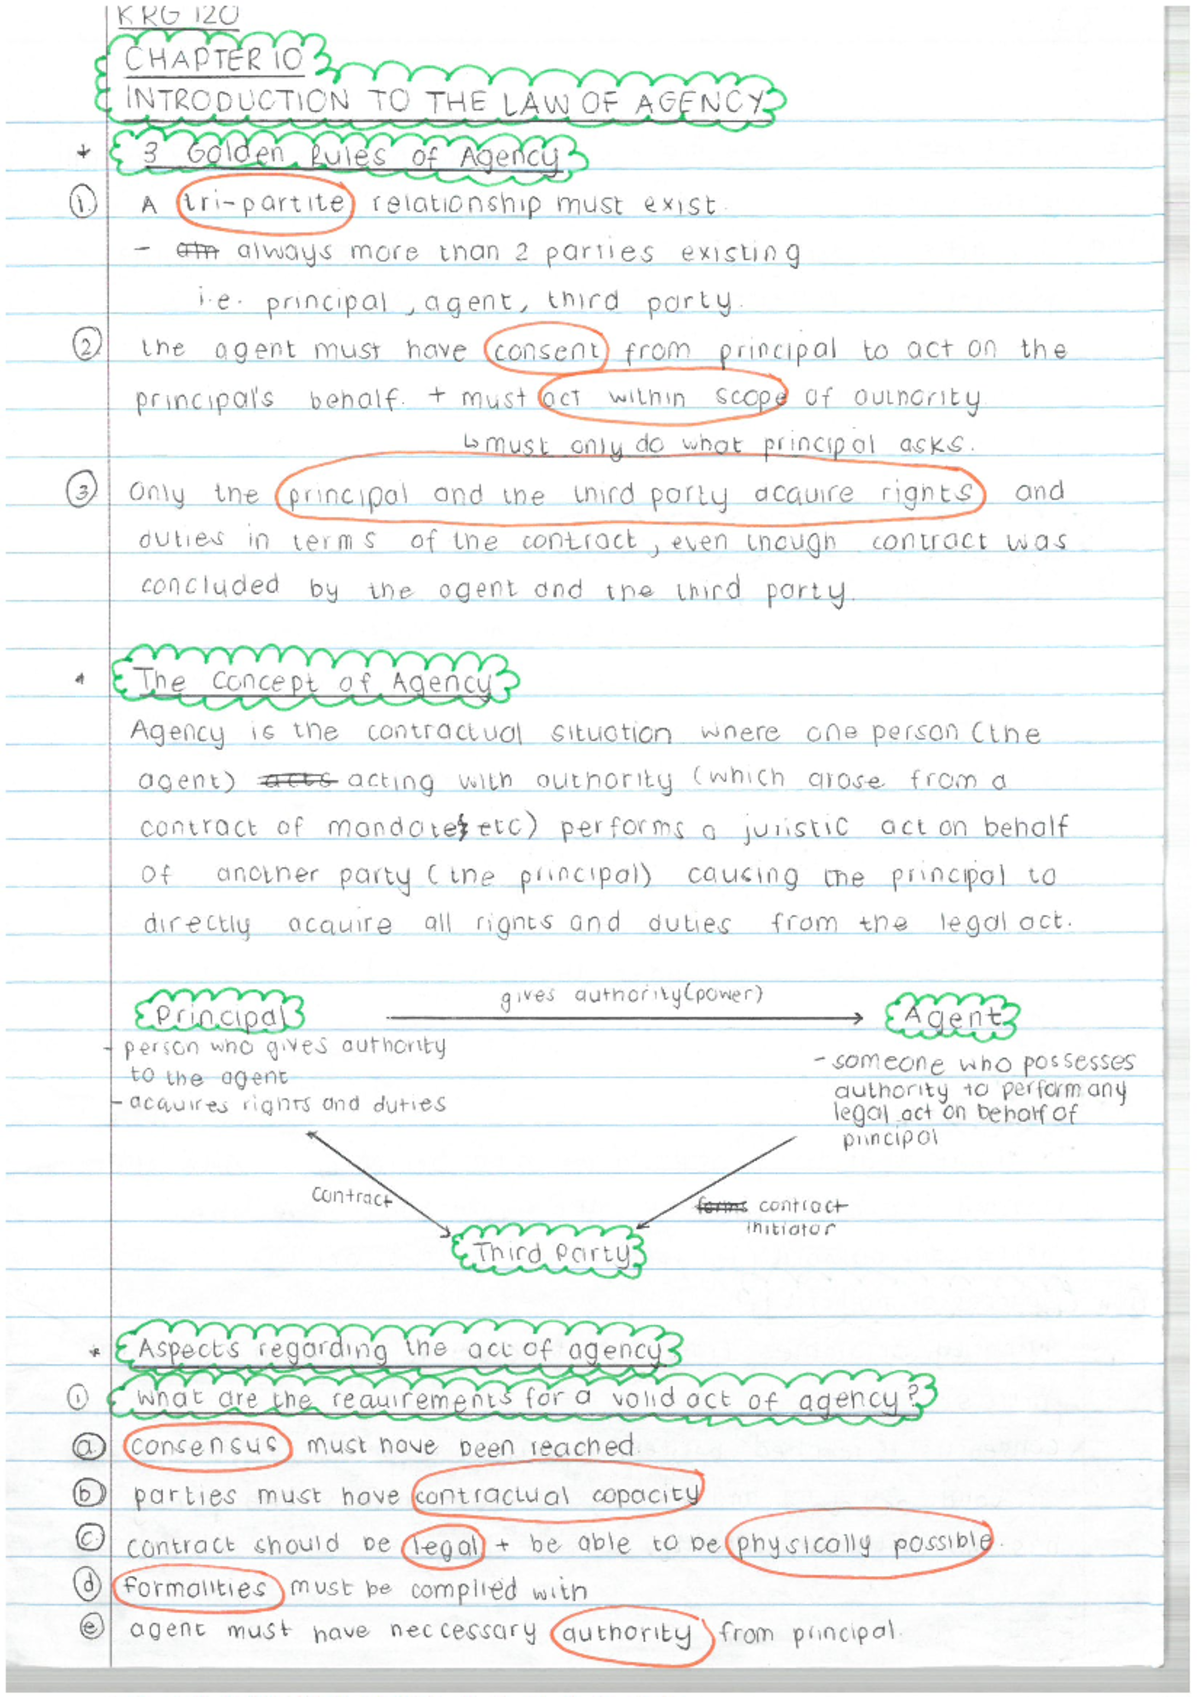 KRG 120
CHAPTER 10
INTRODUCTION TO THE LAW OF AGENCY
* 3 Golden Rules of Agency
① A tri-partite relationship must exist.
- atn always more than 2 parties existing
i.e. principal, agent, third party.
② the agent must have consent from principal to act on the
principal's behalf. + must act within scope of authority
↳ must only do what principal asks.
③ Only the principal and the third party acquire rights and
duties in terms of the contract, even though contract was
concluded by the agent and the third party.
* The Concept of Agency
Agency is the contractual situation where one person (the
agent) acts acting with authority (which arose from a
contract of mandate, etc) performs a juristic act on behalf
of another party (the principal) causing the principal to
directly acquire all rights and duties from the legal act.
gives authority (power)
Principal
Agent
- person who gives authority
to the agent
- acquires rights and duties
- someone who possesses
authority to perform any
legal act on behalf of
principal
contract
forms contract
initiator
Third Party
* Aspects regarding the act of agency
① What are the requirements for a valid act of agency?
ⓐ consensus must have been reached
ⓑ parties must have contractual capacity
ⓒ contract should be legal + be able to be physically possible.
ⓓ formalities must be complied with
ⓔ agent must have neccessary authority from principal.